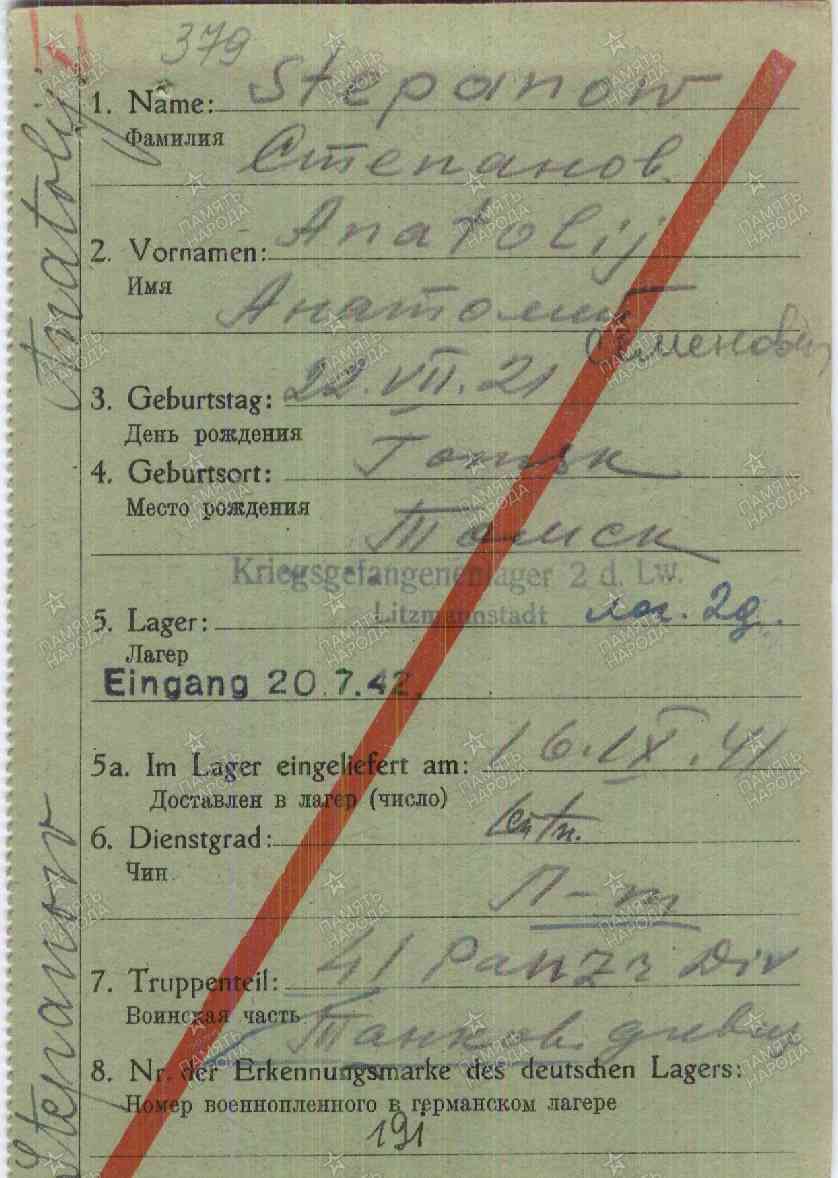 379
1. Name: Stepanow
Фамилия
Степанов
2. Vornamen: Anatolij
Имя
Анатолий
Семенович
3. Geburtstag: 22.VII.21
День рождения
4. Geburtsort: Tomsk
Место рождения
Томск
Kriegsgefangenenlager 2 d. Lw.
Litzmannstadt
5. Lager: лаг. 2д.
Лагер
Eingang 20.7.42.
5a. Im Lager eingeliefert am: 16.IX.41
Доставлен в лагер (число)
6. Dienstgrad:
Чин
Л-т
7. Truppenteil: 41 Panzr Div
Воинская часть
Танков.
8. Nr. der Erkennungsmarke des deutschen Lagers:
Номер военнопленного в германском лагере
191
Stepanow Anatolij
ПАМЯТЬ
НАРОДА